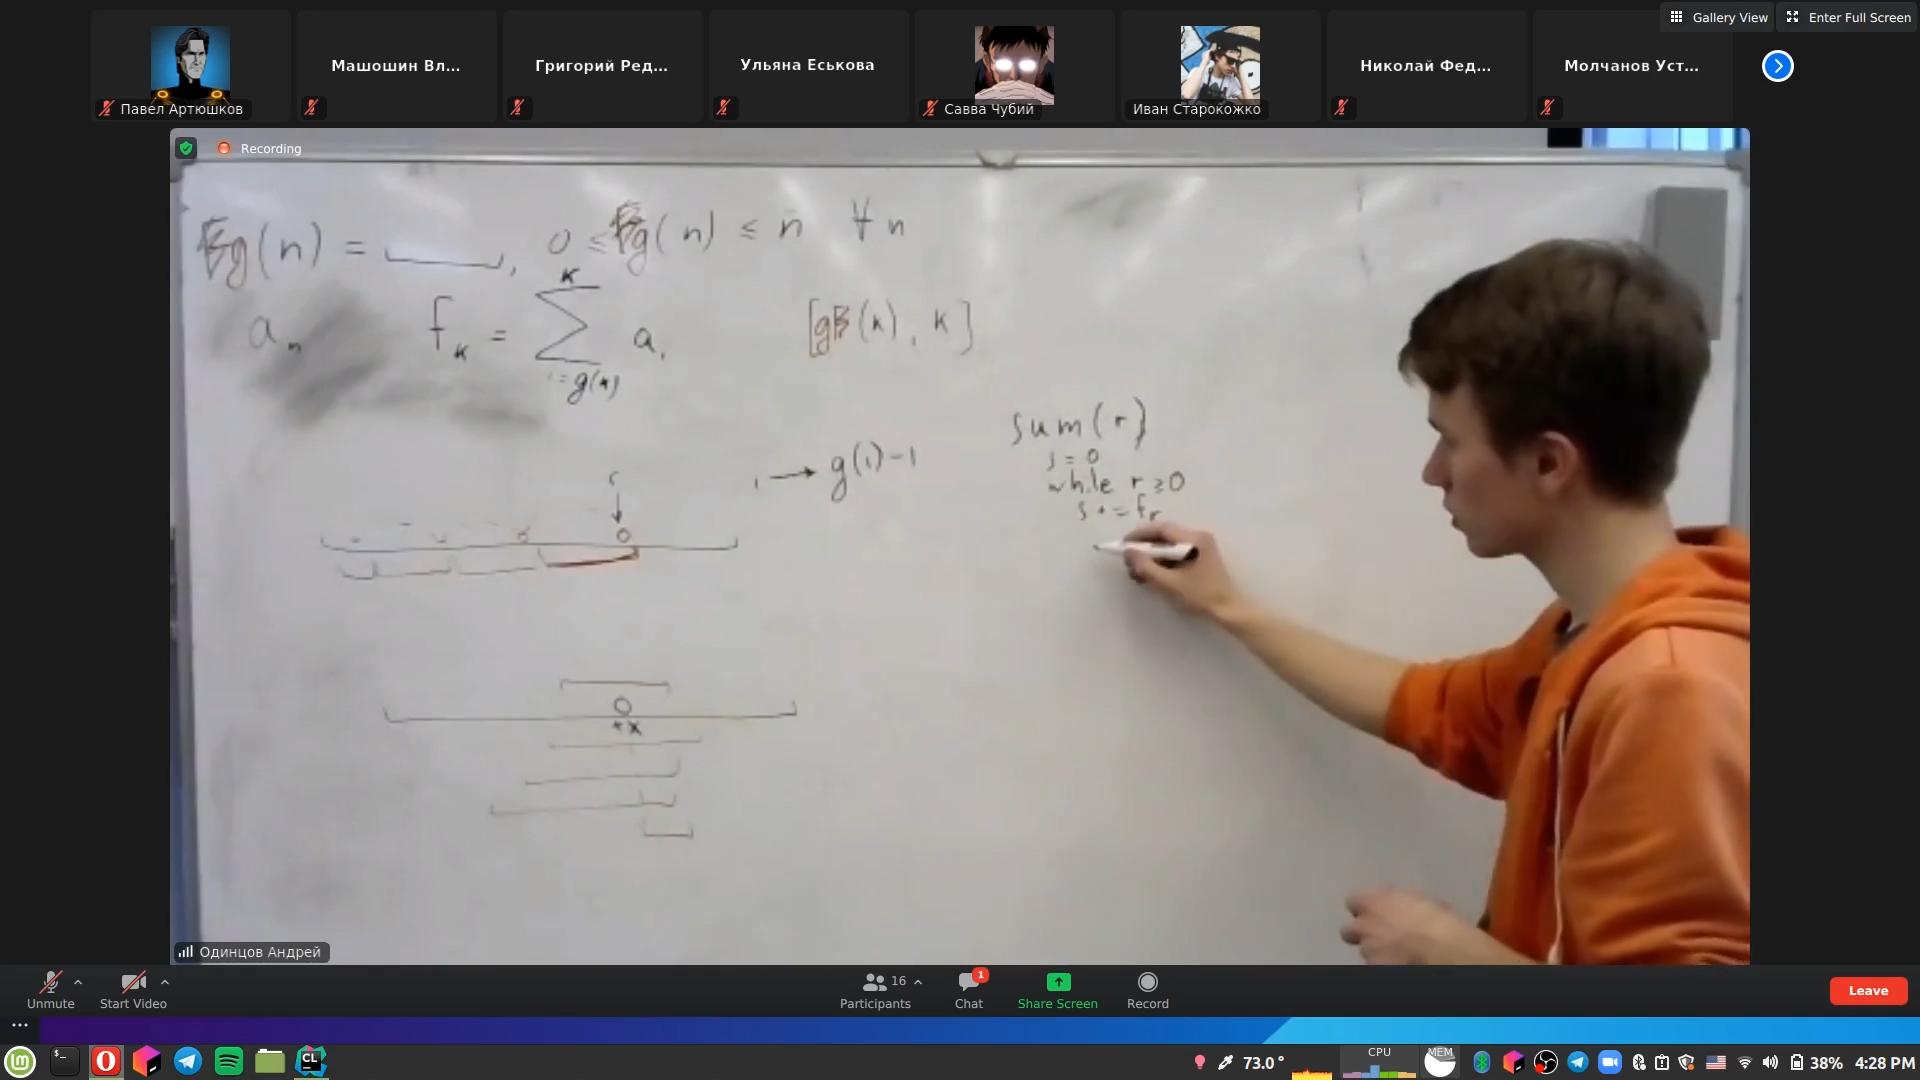 Gallery View
Enter Full Screen
Павел Артюшков
Машошин Вл...
Григорий Ред...
Ульяна Еськова
Савва Чубий
Иван Старокожко
Николай Фед...
Молчанов Уст...
Recording
g(n) = , 0 ≤ g(n) ≤ n ∀ n
a n f k = ∑ k i = g(k) a i [g(k), k]
i → g(i)-1
r
sum(r)
s = 0
while r ≥ 0
s += f r
Одинцов Андрей
Unmute
Start Video
16
Participants
1
Chat
Share Screen
Record
Leave
CL
73.0°
CPU
MEM
38%
4:28 PM